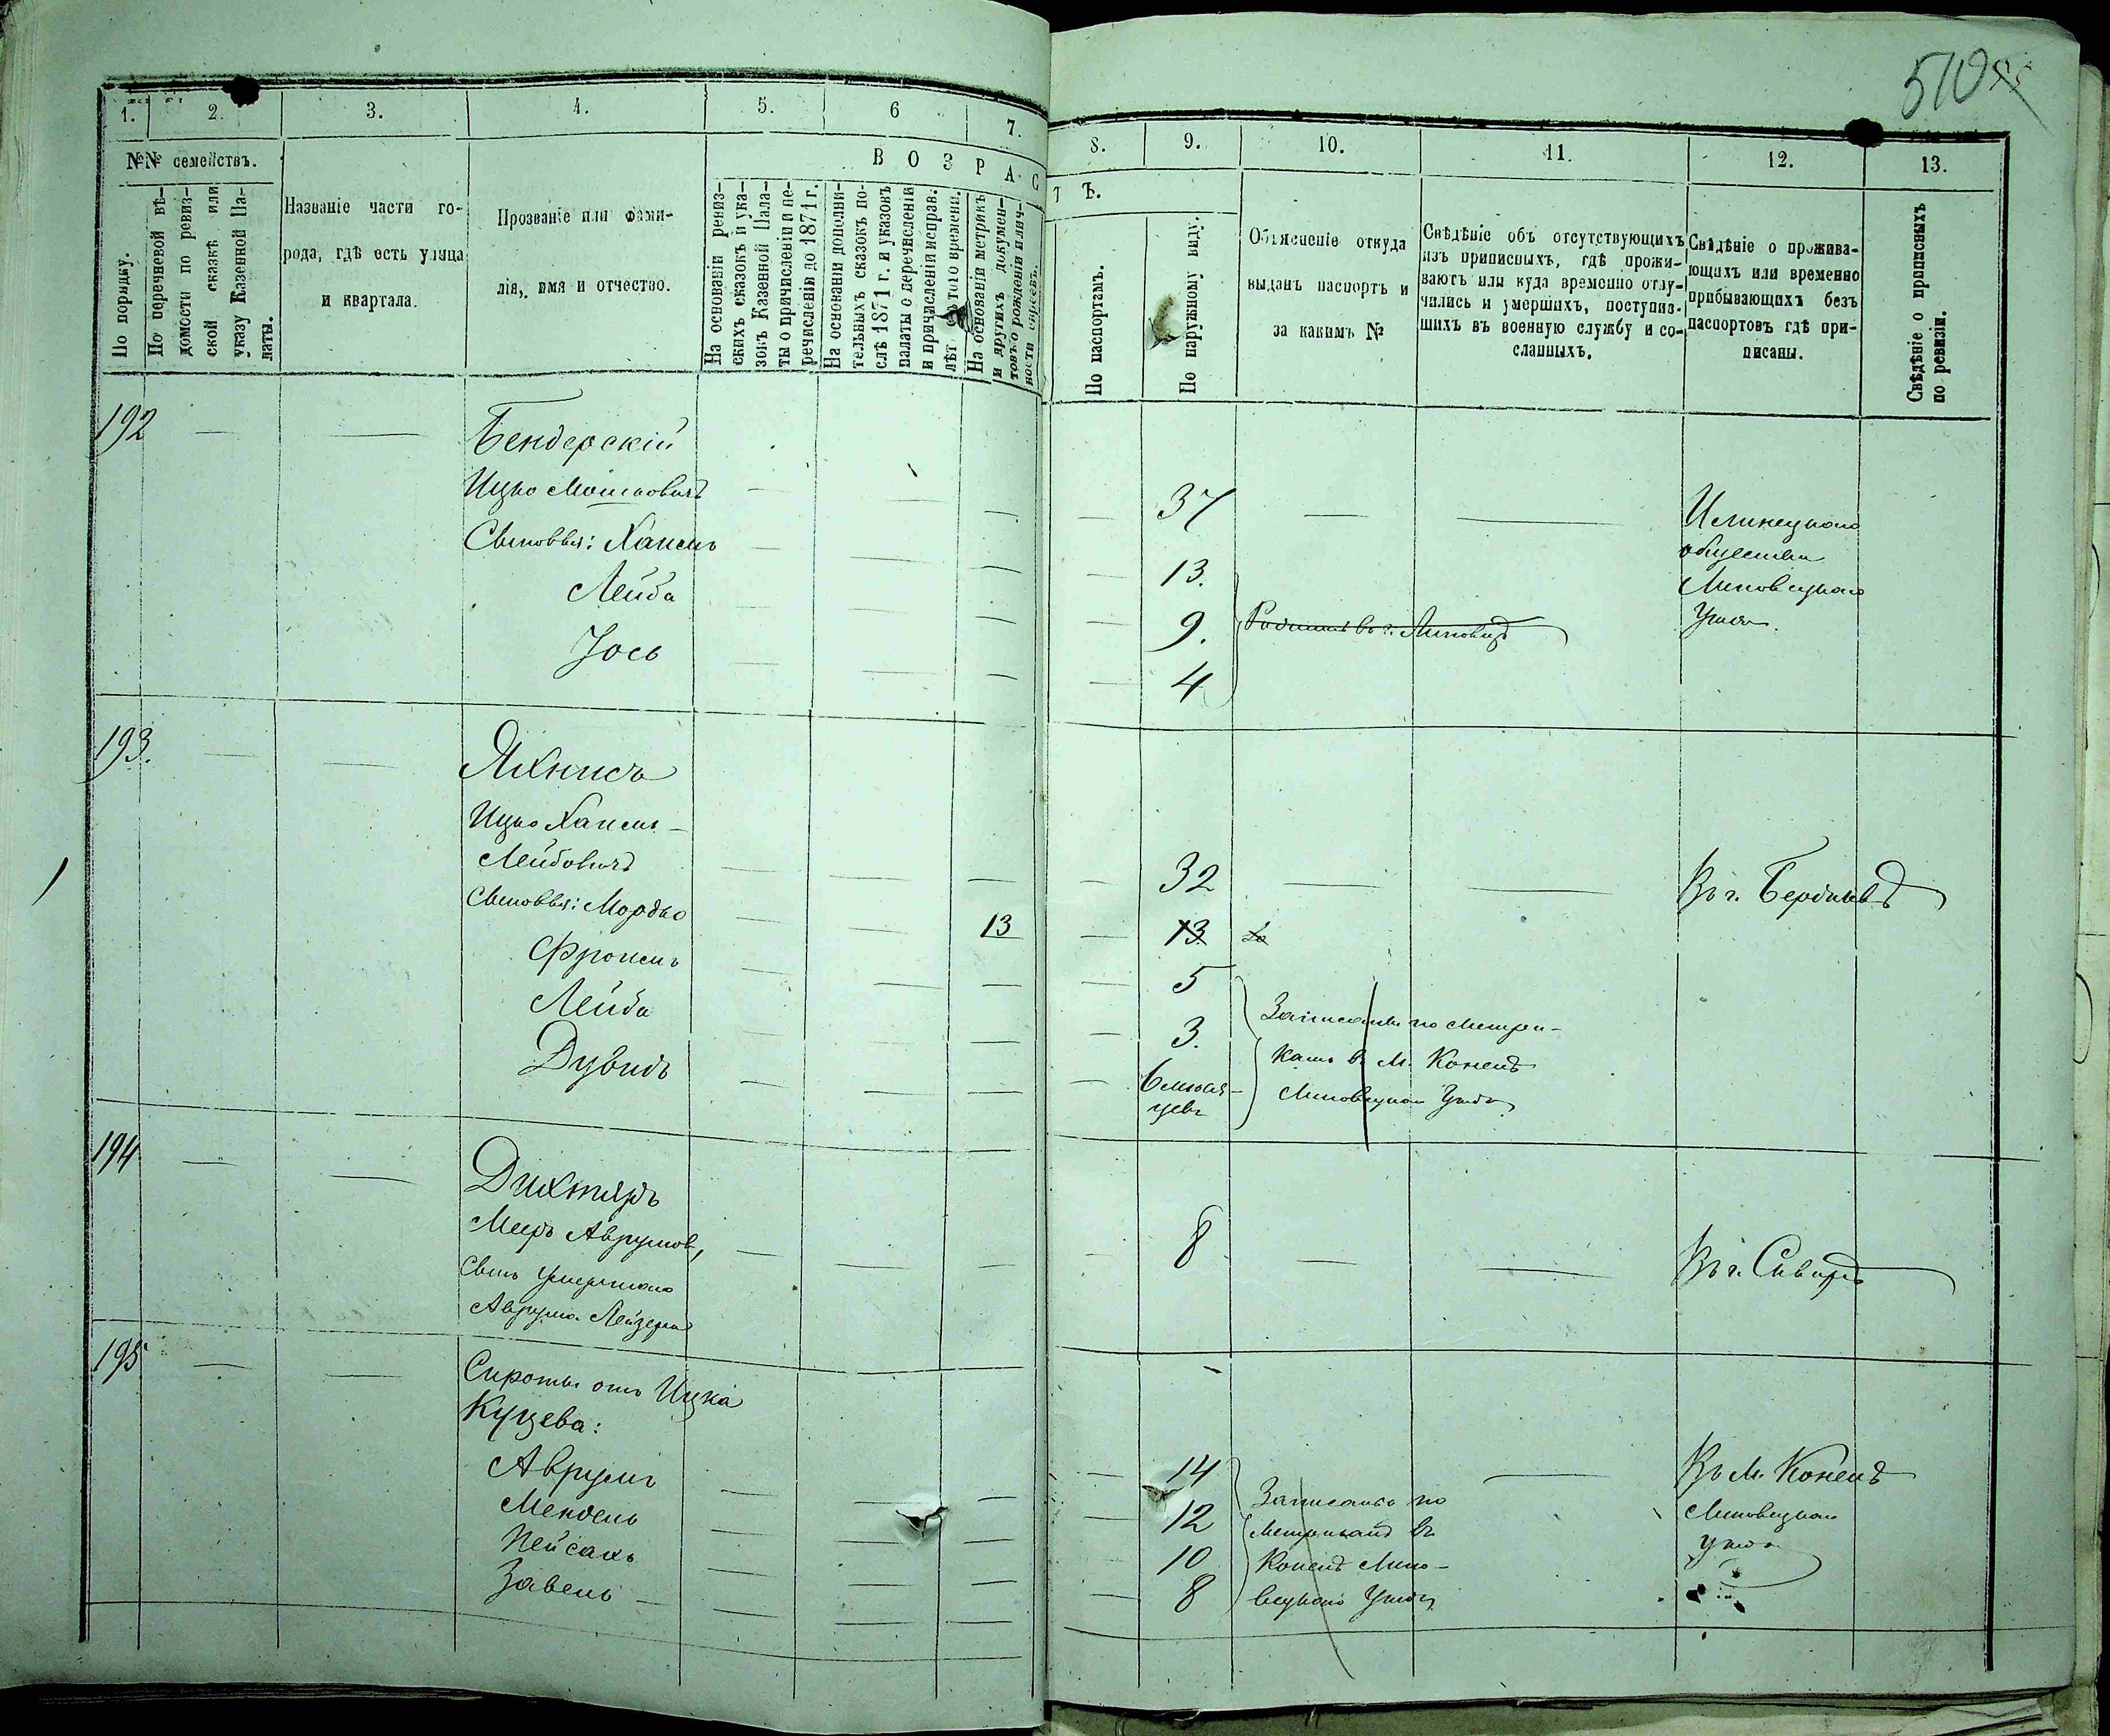 510
1. 2. 3. 4. 5. 6 7. 8. 9. 10. 11. 12. 13.
№№ семействъ.
По порядку.
По перечневой вѣ-
домости по ревиз-
ской сказкѣ или
указу Казенной Па-
латы.
Названіе части го-
рода, гдѣ есть улица
и квартала.
Прозваніе или фами-
лія, имя и отчество.
В О З Р А С Т Ъ.
На основаніи ревиз-
скихъ сказокъ и ука-
зовъ Казенной Пала-
ты о причисленіи и пе-
речисленіи до 1871 г.
На основаніи дополни-
тельныхъ сказокъ по-
слѣ 1871 г. и указовъ
палаты о перечисленіи
и причисленіи исправ.
лѣт съ того времени.
На основаніи метрикъ
и другихъ докумен-
товъ о рожденіи и лич-
ности евреевъ.
По паспортамъ.
По наружному виду.
Объясненіе откуда
выданъ паспортъ и
за какимъ №
Свѣдѣніе объ отсутствующихъ
изъ приписныхъ, гдѣ прожи-
ваютъ или куда временно отлу-
чились и умершихъ, поступив-
шихъ въ военную службу и со-
сланныхъ.
Свѣдѣніе о прожива-
ющихъ или временно
прибывающихъ безъ
паспортовъ гдѣ при-
писаны.
Свѣдѣніе о приписныхъ
по ревизіи.
192
Бендерскій
Ицко Мошковичъ 37
Сыновья: Хаимъ 13.
Лейба 9.
Іось 4
въ г. Липовцѣ
Илинецкаго
общества
Липовецкаго
Уѣзда.
193.
Яхнисъ
Ицко Хаимъ-
Лейбовичъ 32
Въ г. Бердичевѣ
Сыновья: Мордко 13 13
Фроимъ 5
Лейба 3.
Дувидъ 6 мѣся-
цевъ
Записаны по метри-
камъ въ М. Конелѣ
Липовецкаго Уѣзда
194
Дихтяръ
Меиръ Аврумов, 8
Сынъ умершаго
Аврума Лейзера
Въ г. Сквирѣ
195
Сироты отъ Ицка
Куцева:
Аврумъ 14
Мендель 12
Пейсахъ 10
Завель 8
Записаны по
метрикамъ въ
Конелѣ Липо-
вецкаго Уѣзда
Въ М. Конелѣ
Липовецкаго
Уѣзда